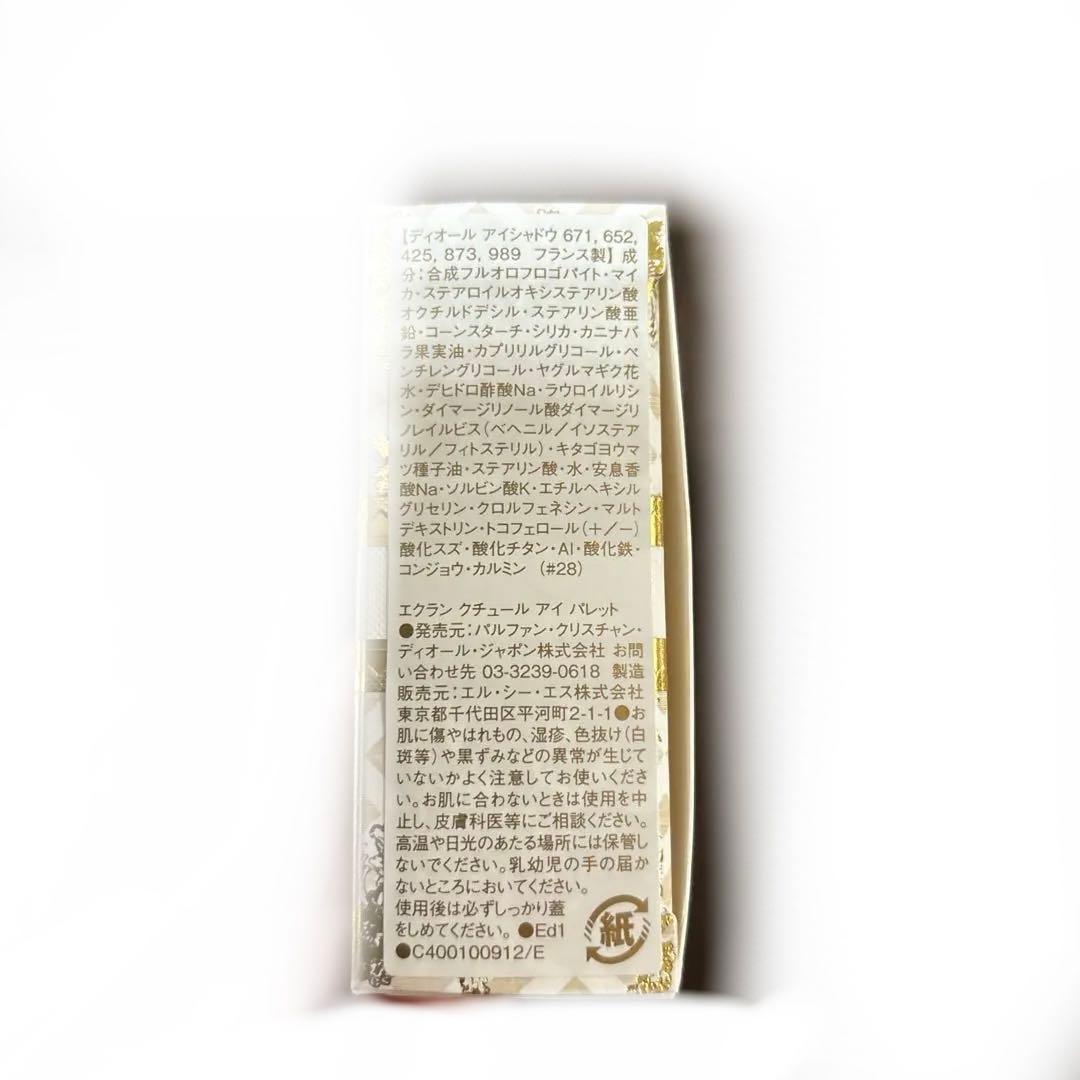 【ディオール アイシャドウ 671, 652,
425, 873, 989 フランス製】 成
分：合成フルオロフロゴパイト・マイ
カ・ステアロイルオキシステアリン酸
オクチルドデシル・ステアリン酸亜
鉛・コーンスターチ・シリカ・カニナバ
ラ果実油・カプリリルグリコール・ペ
ンチレングリコール・ヤグルマギク花
水・デヒドロ酢酸Na・ラウロイルリシ
ン・ダイマージリノール酸ダイマージリ
ノレイルビス（ベヘニル／イソステア
リル／フィトステリル）・キタゴヨウマ
ツ種子油・ステアリン酸・水・安息香
酸Na・ソルビン酸K・エチルヘキシル
グリセリン・クロルフェネシン・マルト
デキストリン・トコフェロール（＋／－）
酸化スズ・酸化チタン・Al・酸化鉄・
コンジョウ・カルミン （#28）
エクラン クチュール アイ パレット
●発売元：パルファン・クリスチャン・
ディオール・ジャポン株式会社 お問
い合わせ先 03-3239-0618 製造
販売元：エル・シー・エス株式会社
東京都千代田区平河町2-1-1●お
肌に傷やはれもの、湿疹、色抜け（白
斑等）や黒ずみなどの異常が生じて
いないかよく注意してお使いくださ
い。お肌に合わないときは使用を中
止し、皮膚科医等にご相談ください。
高温や日光のあたる場所には保管し
ないでください。乳幼児の手の届か
ないところにおいてください。
使用後は必ずしっかり蓋
をしめてください。 ●Ed1
●C400100912/E
紙